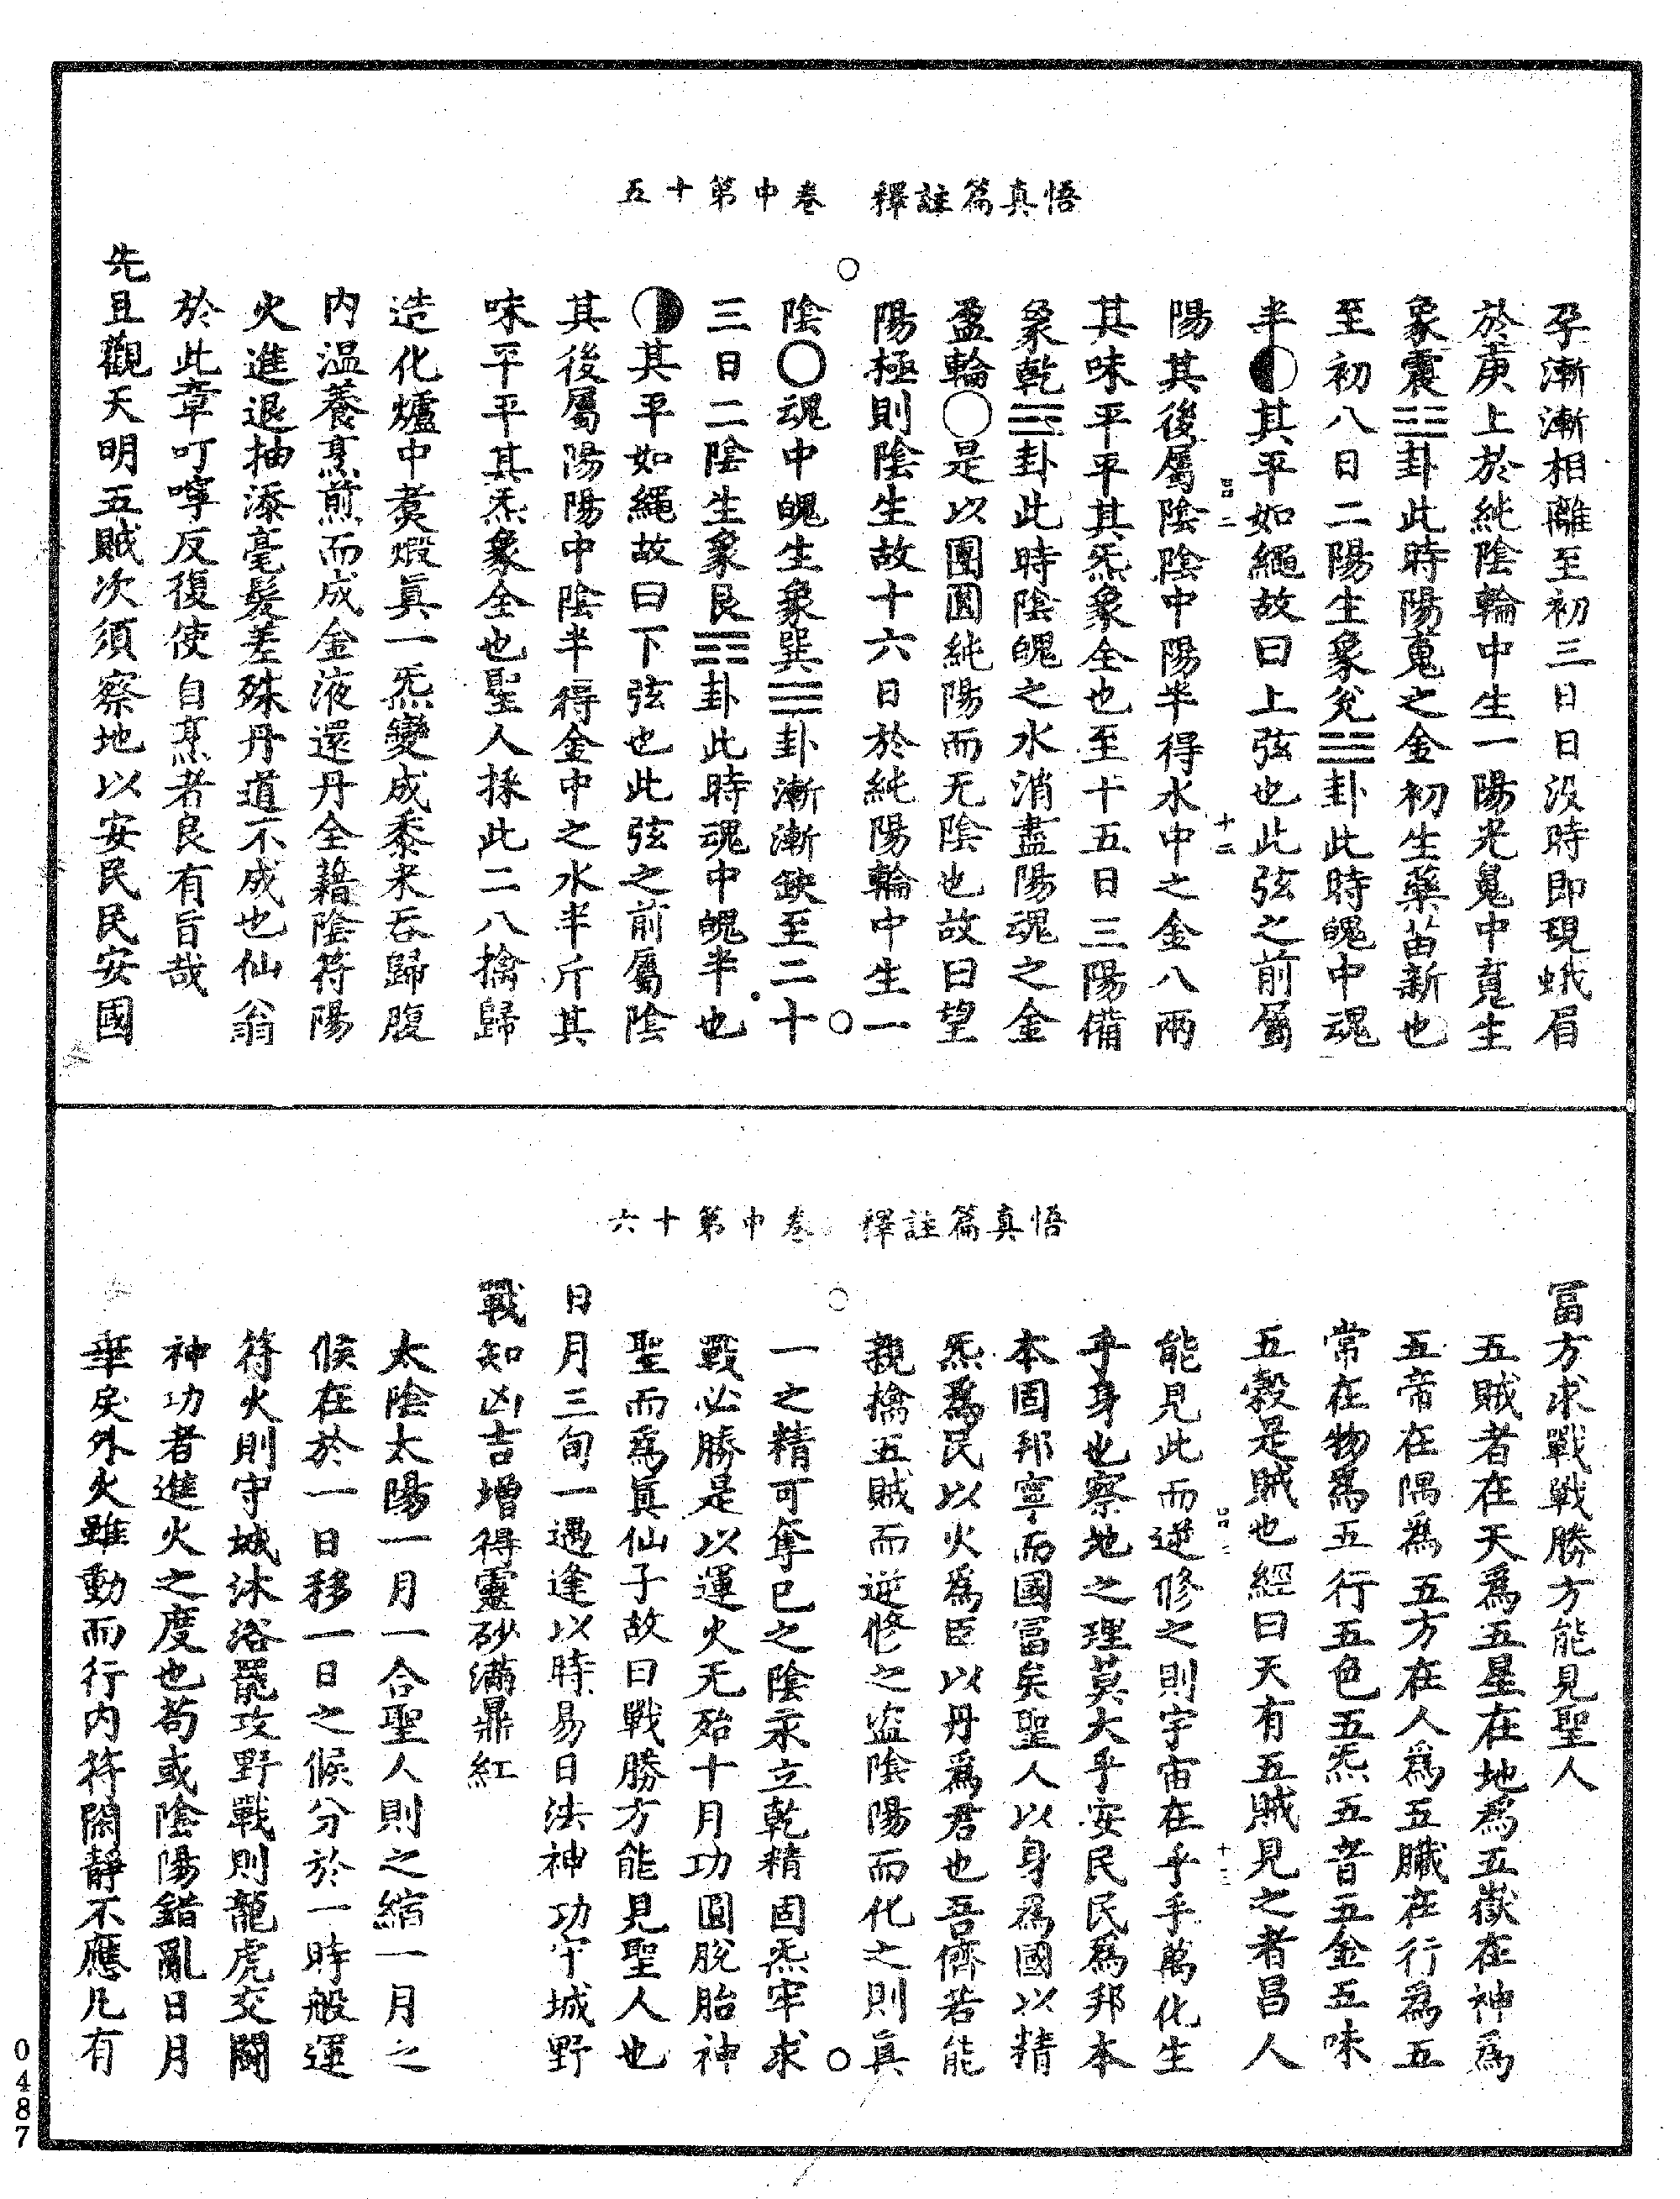 悟真篇註釋　卷中第十五
孕漸漸相離至初三日日没時即現蛾眉
於庚上於純陰輪中生一陽光䰟中䰟生
象震☳卦此時陽䰟之金初生藥苗新也
至初八日二陽生象兊☱卦此時魄中魂
半◐其平如繩故曰上弦也此弦之前屬
陽其後屬陰陰中陽半得水中之金八兩
其味平平其炁象全也至十五日三陽備
象乾☰卦此時陰魄之水消盡陽魂之金
盈輪○是以團圓純陽而无陰也故曰望
陽極則陰生故十六日於純陽輪中生一
陰○魂中魄生象巽☴卦漸漸缺至二十
三日二陰生象艮☶卦此時魂中魄半也
◑其平如繩故曰下弦也此弦之前屬陰
其後屬陽陽中陰半得金中之水半斤其
味平平其炁象全也聖人採此二八擒歸
造化爐中煑煅真一炁變成黍米吞歸腹
内温養烹煎而成金液還丹全藉陰符陽
火進退抽添毫髮差殊丹道不成也仙翁
於此章叮嚀反復使自烹者良有旨哉
先且觀天明五賊次須察地以安民民安國
十二
悟真篇註釋　卷中第十六
冨方求戰戰勝方能見聖人
五賊者在天爲五星在地爲五嶽在神爲
五帝在隅爲五方在人爲五臟在行爲五
常在物爲五行五色五炁五音五金五味
五穀是賊也經曰天有五賊見之者昌人
能見此而逆修之則宇宙在乎手萬化生
乎身也察地之理莫大乎安民民爲邦本
本固邦寧而國冨矣聖人以身爲國以精
炁爲民以火爲臣以丹爲君也吾儕若能
親擒五賊而逆修之盗陰陽而化之則真
一之精可奪巳之陰汞立乾精固炁牢求
戰必勝是以運火无殆十月功圓脫胎神
聖而爲真仙子故曰戰勝方能見聖人也
日月三旬一遇逢以時易日法神功守城野
戰知凶吉增得靈砂滿鼎紅
太陰太陽一月一合聖人則之縮一月之
候在於一日移一日之候分於一時般運
符火則守城沐浴罷攻野戰則龍虎交鬪
神功者進火之度也苟或陰陽錯亂日月
乖戾外火雖動而行内符閑靜不應凡有
十三
0487